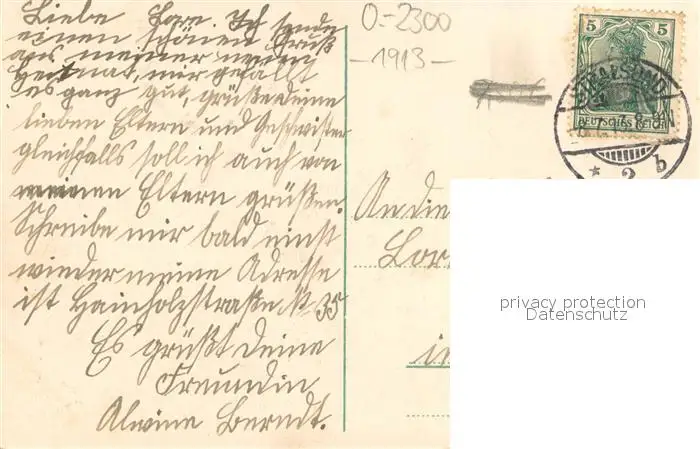 Liebe Lore. Ich sende
einen schönen Gruß
aus meiner neuen
Heimat, mir gefällt
es ganz gut, grüße deine
lieben Eltern und Geschwister
gleichfalls soll ich auch von
meinen Eltern grüßen.
Schreibe mir bald einst
wieder meine Adresse
ist Hainholzstraße № 35
Es grüßt deine
Freundin
Alwine Berndt.
0.-2300
-1913-
5 5
DEUTSCHES REICH
STRALSUND
* 2 b
An die
Lor
in
privacy protection
Datenschutz